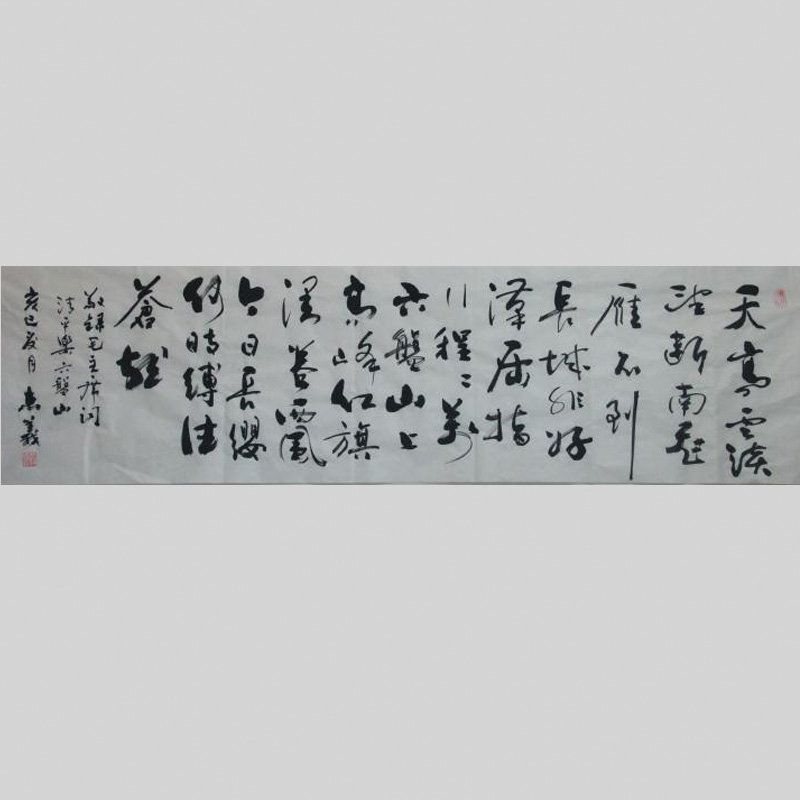 天高云淡
望斷南飛
雁不到
長城非好
漢屈指
行程二萬
六盤山上
高峰红旗
漫卷西風
今日長纓
何時縛住
蒼龍
敬録毛主席词
清平樂六盤山
巳月